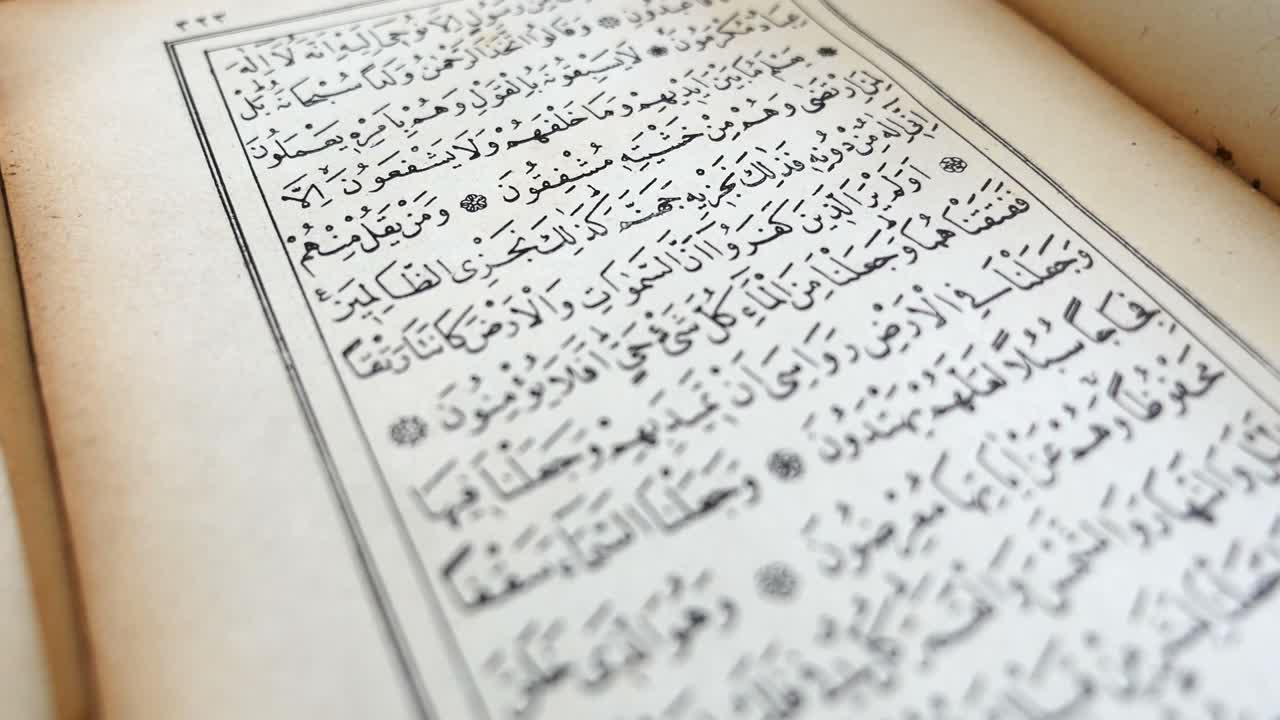 ٣٢٣
مِنْ رَسُولٍ اِلَّا نُوحِى اِلَيْهِ اَنَّهُ لَا اِلٰهَ
فَاعْبُدُونِ ۞ وَقَالُوا اتَّخَذَ الرَّحْمٰنُ وَلَدًا سُبْحَانَهُ بَلْ
عِبَادٌ مُكْرَمُونَ ۞ لَا يَسْبِقُونَهُ بِالْقَوْلِ وَهُمْ بِاَمْرِهِ يَعْمَلُونَ
۞ يَعْلَمُ مَا بَيْنَ اَيْدِيهِمْ وَمَا خَلْفَهُمْ وَلَا يَشْفَعُونَ اِلَّا
لِمَنِ ارْتَضٰى وَهُمْ مِنْ خَشْيَتِهِ مُشْفِقُونَ ۞ وَمَنْ يَقُلْ مِنْهُمْ
اِنِّى اِلٰهٌ مِنْ دُونِهِ فَذٰلِكَ نَجْزِيهِ جَهَنَّمَ كَذٰلِكَ نَجْزِى الظَّالِمِينَ
۞ اَوَلَمْ يَرَ الَّذِينَ كَفَرُوا اَنَّ السَّمٰوَاتِ وَالْاَرْضَ كَانَتَا رَتْقًا
فَفَتَقْنَاهُمَا وَجَعَلْنَا مِنَ الْمَاءِ كُلَّ شَىْءٍ حَىٍّ اَفَلَا يُؤْمِنُونَ ۞
وَجَعَلْنَا فِى الْاَرْضِ رَوَاسِىَ اَنْ تَمِيدَ بِهِمْ وَجَعَلْنَا فِيهَا
فِجَاجًا سُبُلًا لَعَلَّهُمْ يَهْتَدُونَ ۞ وَجَعَلْنَا السَّمَاءَ سَقْفًا
مَحْفُوظًا وَهُمْ عَنْ اٰيَاتِهَا مُعْرِضُونَ ۞ وَهُوَ الَّذِى خَلَقَ
وَالنَّهَارَ وَالشَّمْسَ وَالْقَمَرَ كُلٌّ فِى فَلَكٍ